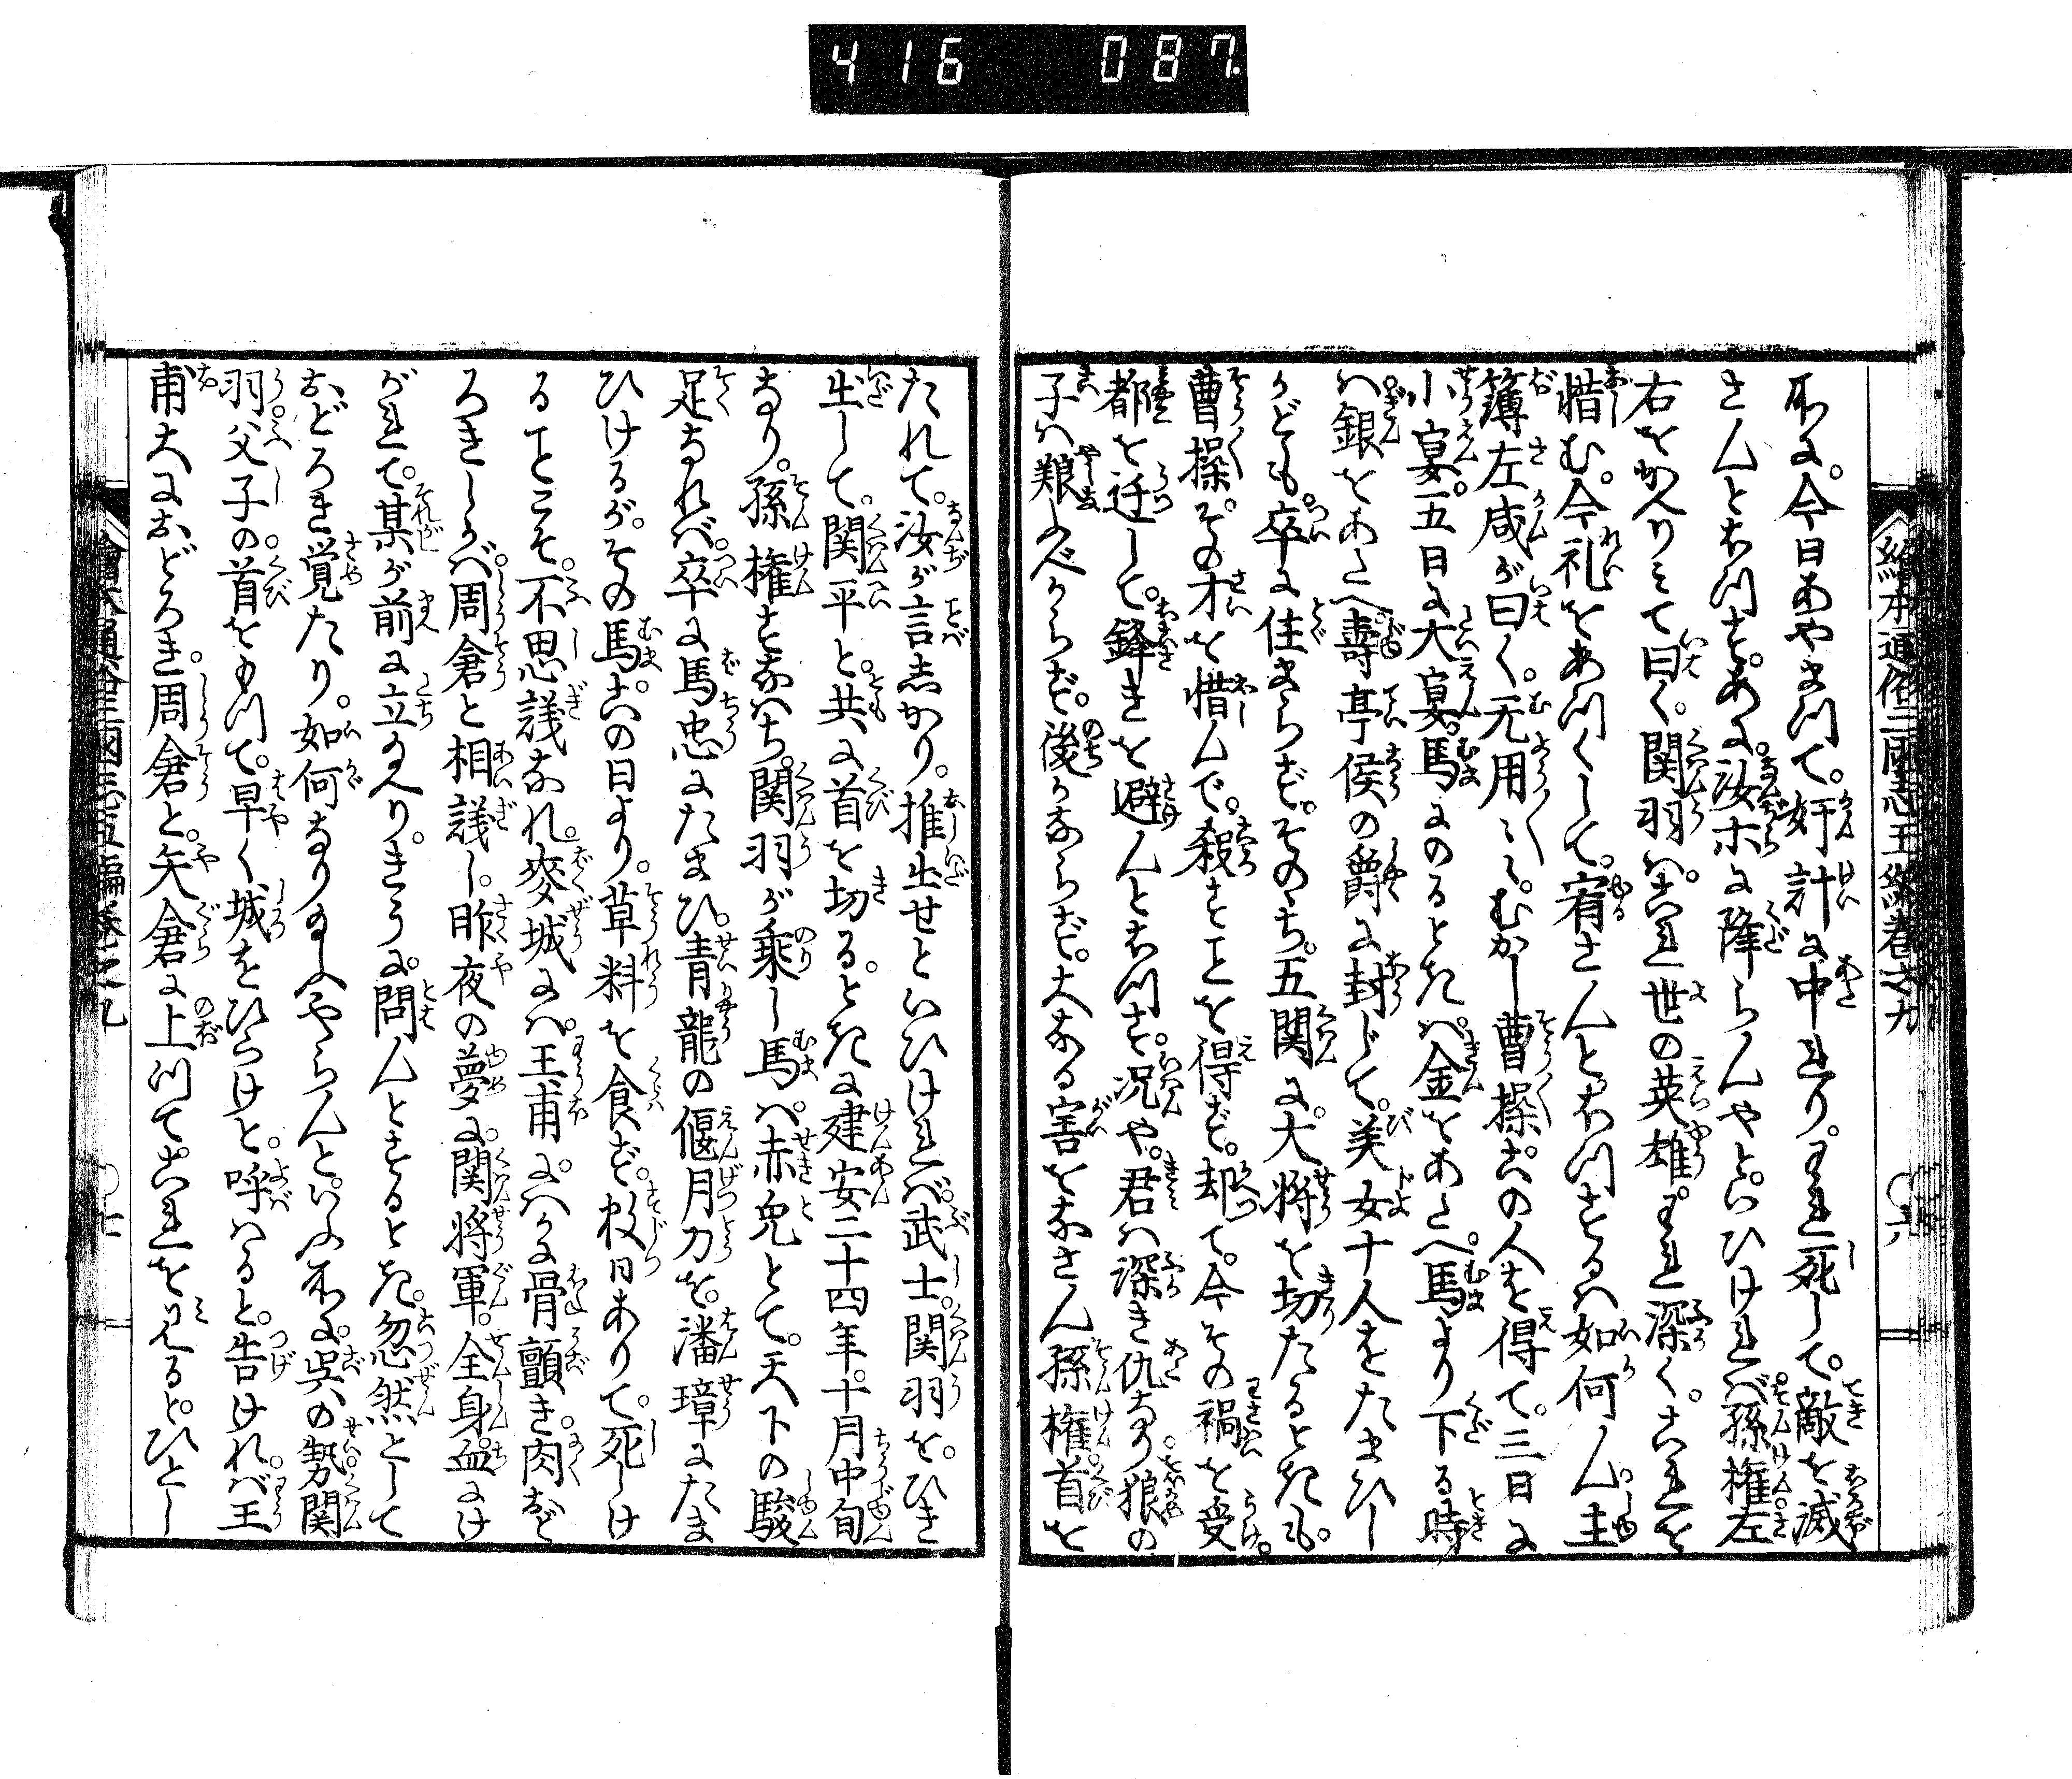 416 087.
繪本通俗三國志五編卷之九 〇六
尓に。今日あやまつて。奸計に中れり。われ死して。敵を滅
さんとおもつす。あに。汝ホに降らんやと。いひければ。孫権左
右をかへりみて曰く。関羽は。これ世の英雄。われ深く。これを
惜む。今礼をあつくして。宥さんとおもつするは如何ん。主
簿左咸が曰く。无用〳〵。むかし曹操。この人を得て。三日に
小宴。五日に大宴。馬にのるときは。金をあたへ。馬より下る時
は銀をあたへ。壽亭侯の爵に封じて。美女十人をたまひし
かども。卒に住まらず。そのゝち。五関に。大将を切たるときも。
曹操。その才を惜んで。殺すことを得ず。却て。今その禍を受
都を迁して。鋒きを避んとおもつす。况や。君は深き仇なり。狼の
子は艱ふべからず。後かならず。大なる害をなさん孫権首を
たれて。汝が言しかり。推出せといひければ。武士。関羽を。ひき
出して。関平と。共に首を切る。ときに建安二十四年。十月中旬
なり。孫権すなはち。関羽が乗し馬は。赤兎とて。天下の駿
足なれば。卒に馬忠にたまひ。青龍の偃月刀を。潘璋にたま
ひけるが。その馬。この日より。草料を食ず。数日ありて。死しけ
ることこそ。不思議なれ。麥城には。王甫。にはかに骨顫き。肉おど
ろきしかば。周倉と相議し。昨夜の夢に。関将軍。全身血にけ
がれて。某が前に立給へり。きうに。問んとするとき。忽然として
おどろき覚たり。如何なりけるやらんと。いふ所に。呉の勢関
羽父子の。首をもつて。早く城をひらけと。呼はると。告ければ。王
甫大におどろき。周倉と。矢倉に上つてこれを見ると。ひとし
繪本通俗三國志五編卷之九 〇七